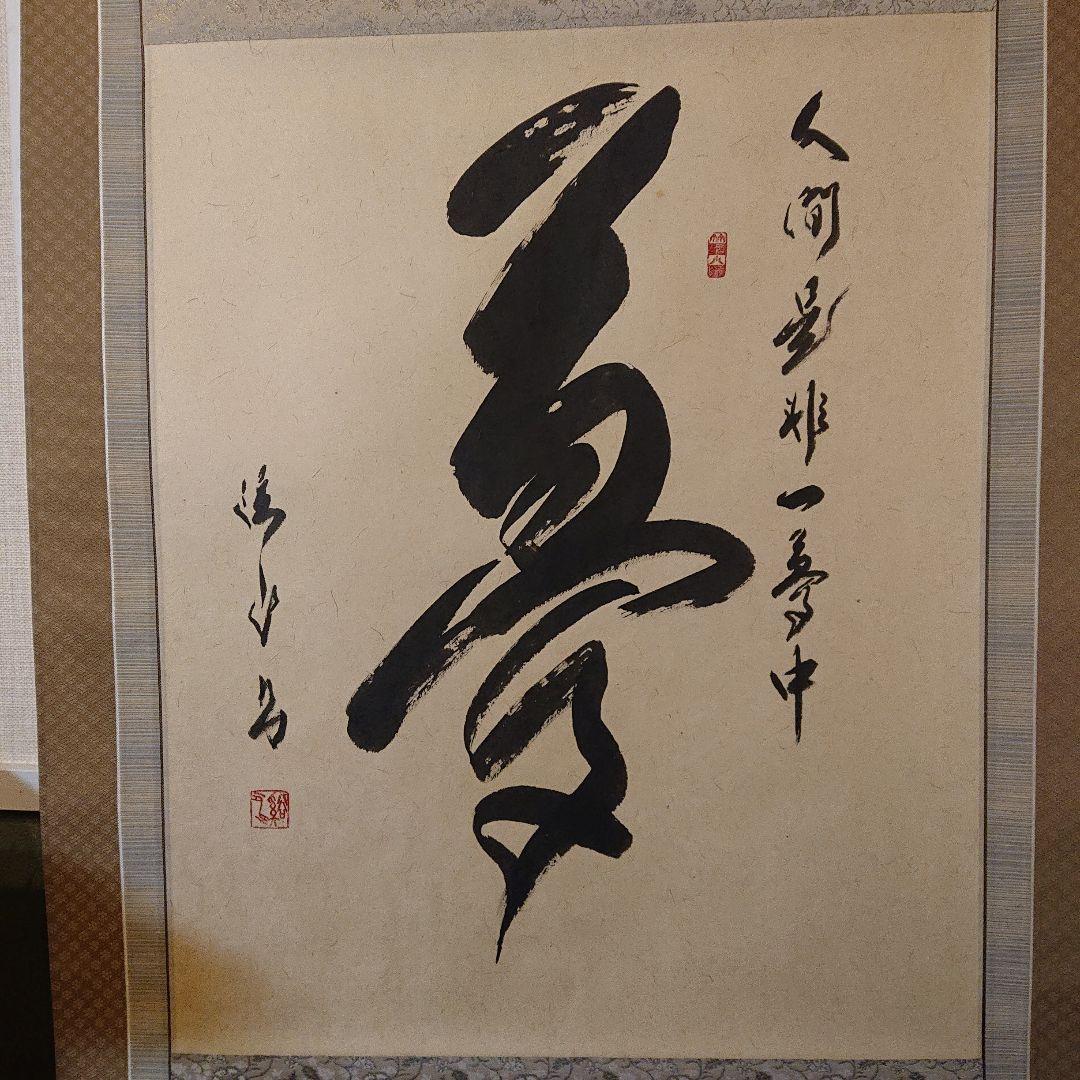 人間是非一夢中
夢